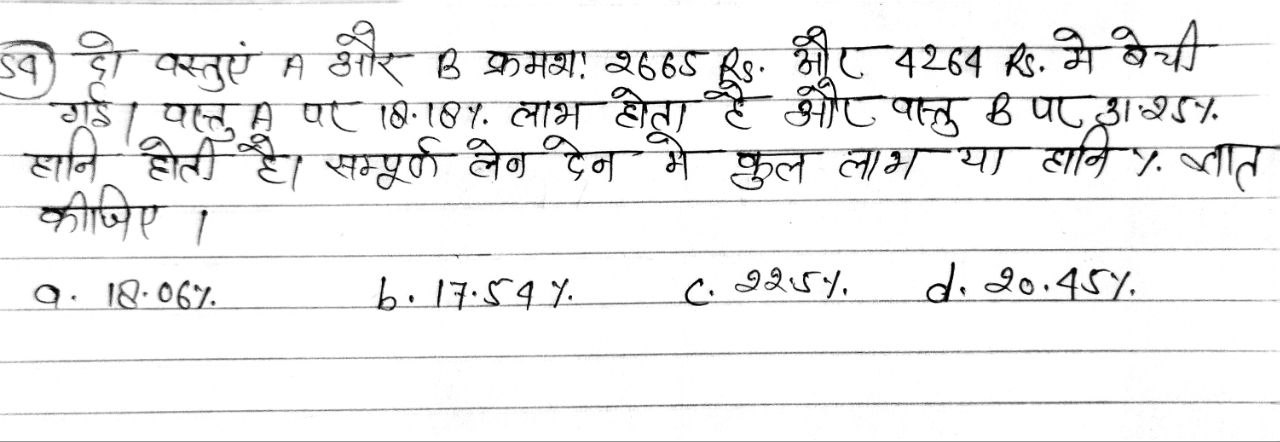 59) दो वस्तुएं A और B क्रमश: 2665 Rs. और 4264 Rs. मे बेची
गई। वस्तु A पर 18.18% लाभ होता है और वस्तु B पर 31.25%
हानि होती है। सम्पूर्ण लेन देन मे कुल लाभ या हानि % ज्ञात
कीजिए।
a. 18.06% b. 17.54% c. 22.5% d. 20.45%